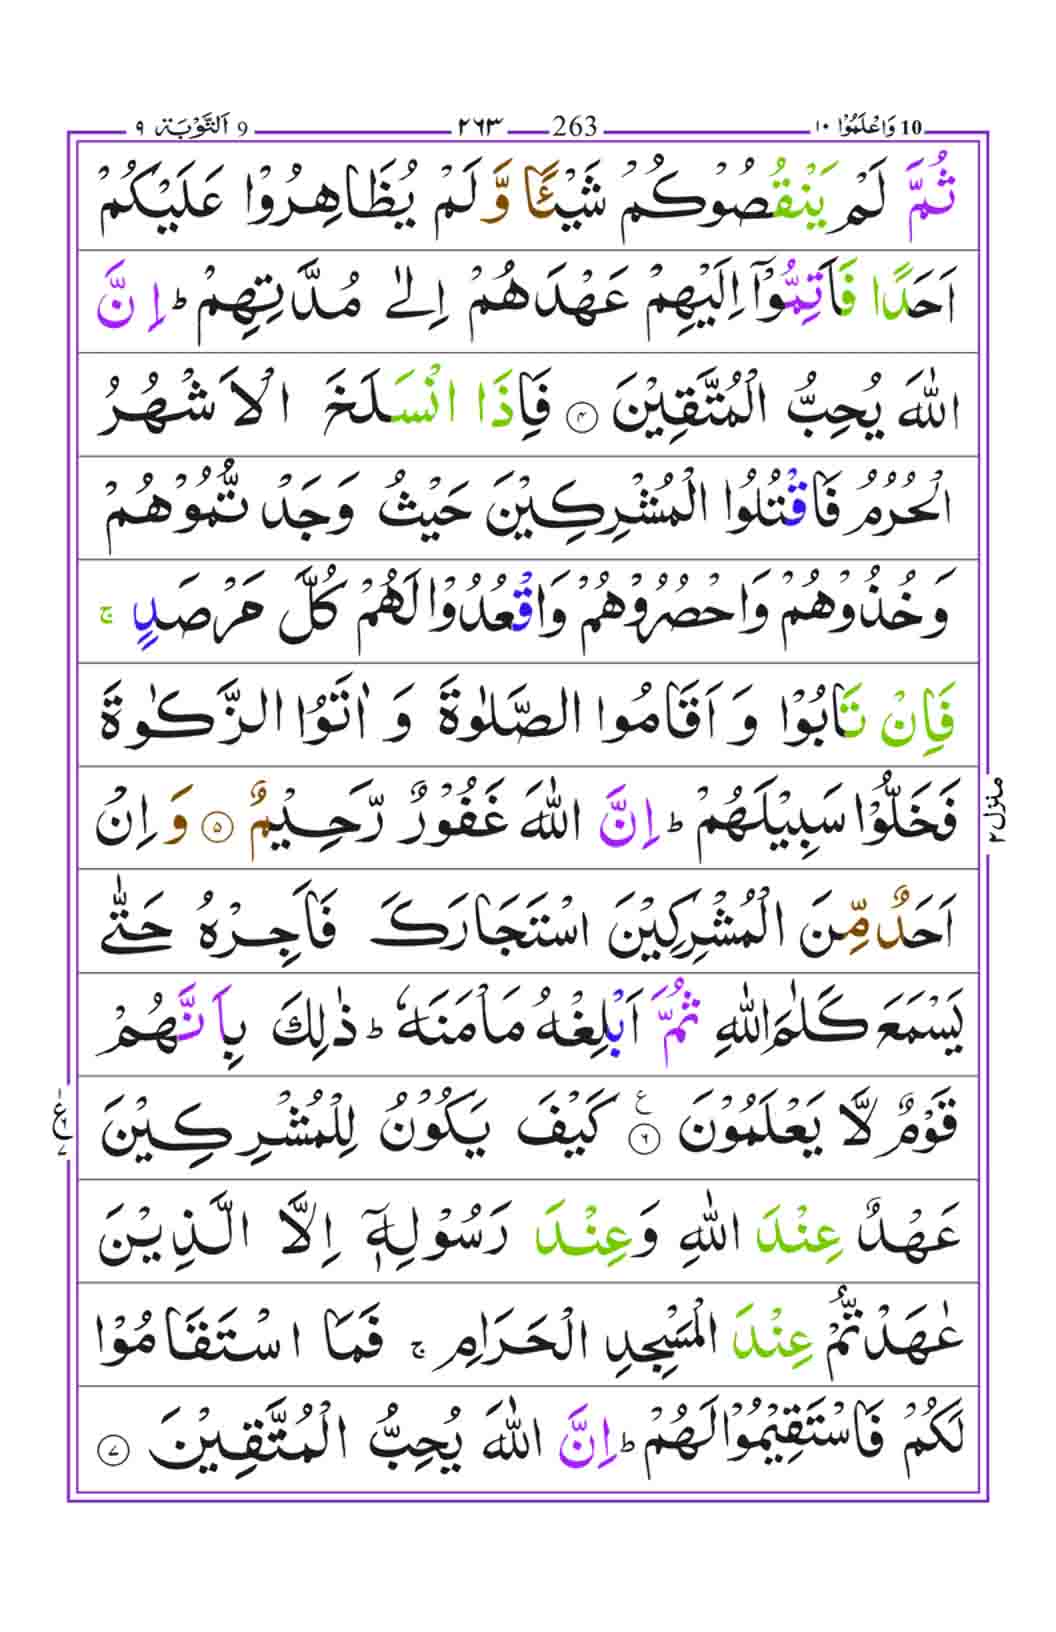 10 وَاعْلَمُوْۤا ۱۰
263 ۲۶۳
9 اَلتَّوْبَة ۹
ثُمَّ لَمْ يَنْقُصُوْكُمْ شَيْــًٔا وَّلَمْ يُظَاهِرُوْا عَلَيْكُمْ
اَحَدًا فَاَتِمُّوْۤا اِلَيْهِمْ عَهْدَهُمْ اِلٰى مُدَّتِهِمْ ؕ اِنَّ
اللّٰهَ يُحِبُّ الْمُتَّقِيْنَ ۴ فَاِذَا انْسَلَخَ الْاَشْهُرُ
الْحُرُمُ فَاقْتُلُوا الْمُشْرِكِيْنَ حَيْثُ وَجَدْتُّمُوْهُمْ
وَخُذُوْهُمْ وَاحْصُرُوْهُمْ وَاقْعُدُوْا لَهُمْ كُلَّ مَرْصَدٍ ۚ
فَاِنْ تَابُوْا وَاَقَامُوا الصَّلٰوةَ وَاٰتَوُا الزَّكٰوةَ
فَخَلُّوْا سَبِيْلَهُمْ ؕ اِنَّ اللّٰهَ غَفُوْرٌ رَّحِيْمٌ ۵ وَاِنْ
اَحَدٌ مِّنَ الْمُشْرِكِيْنَ اسْتَجَارَكَ فَاَجِرْهُ حَتّٰى
يَسْمَعَ كَلٰمَ اللّٰهِ ثُمَّ اَبْلِغْهُ مَاْمَنَهٗ ؕ ذٰلِكَ بِاَنَّهُمْ
قَوْمٌ لَّا يَعْلَمُوْنَ ۶ ع كَيْفَ يَكُوْنُ لِلْمُشْرِكِيْنَ
عَهْدٌ عِنْدَ اللّٰهِ وَعِنْدَ رَسُوْلِهٖۤ اِلَّا الَّذِيْنَ
عٰهَدْتُّمْ عِنْدَ الْمَسْجِدِ الْحَرَامِ ۚ فَمَا اسْتَقَامُوْا
لَكُمْ فَاسْتَقِيْمُوْا لَهُمْ ؕ اِنَّ اللّٰهَ يُحِبُّ الْمُتَّقِيْنَ ۷
منزل ۲